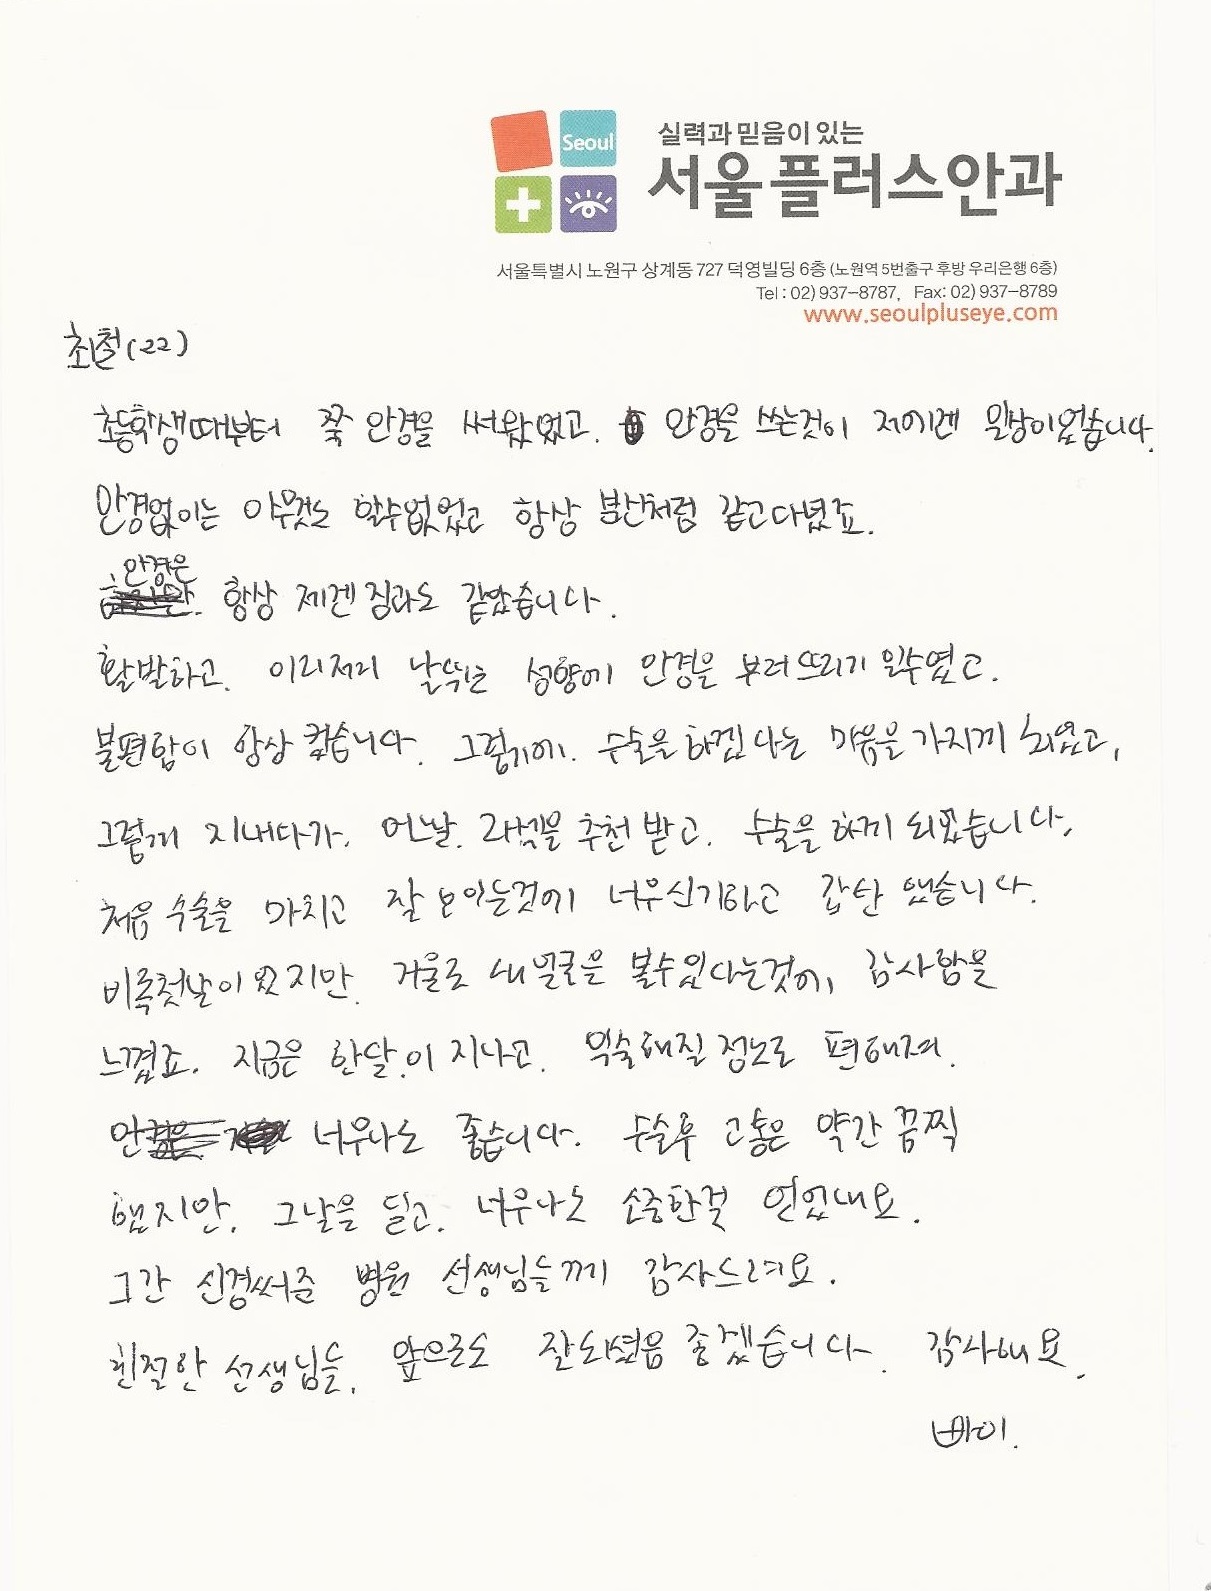 Seoul
실력과 믿음이 있는
서울플러스안과
서울특별시 노원구 상계동 727 덕영빌딩 6층 (노원역 5번출구 후방 우리은행 6층)
Tel : 02) 937-8787, Fax: 02) 937-8789
www.seoulpluseye.com
최철(22)
초등학생때부터 쭉 안경을 써왔었고. 안경을 쓰는것이 저에겐 일상이었습니다.
안경없이는 아무것도 할수없었고 항상 분신처럼 같고다녔죠.
안경은
항상 제겐 짐과도 같았습니다.
활발하고. 이리저리 날뛰는 성향에 안경을 부러뜨리기 일수였고.
불편함이 항상 컸습니다. 그렇기에. 수술을 하겠다는 마음을 가지게 되었고,
그렇게 지내다가. 어느날. 라섹을 추천 받고. 수술을 하게 되었습니다.
처음 수술을 마치고 잘 보이는것에 너무신기하고 감탄 했습니다.
비록첫날이었지만. 거울로 내 얼굴을 볼수있다는것에, 감사함을
느꼈죠. 지금은 한달.이 지나고. 익숙해질 정도로 편해져.
너무나도 좋습니다. 수술후 고통은 약간 끔찍
했지만. 그날을 딛고. 너무나도 소중한걸 얻었네요.
그간 신경써준 병원 선생님들께 감사드려요.
친절한 선생님들. 앞으로도 잘되셨음 좋겠습니다. 감사해요.
빠이.